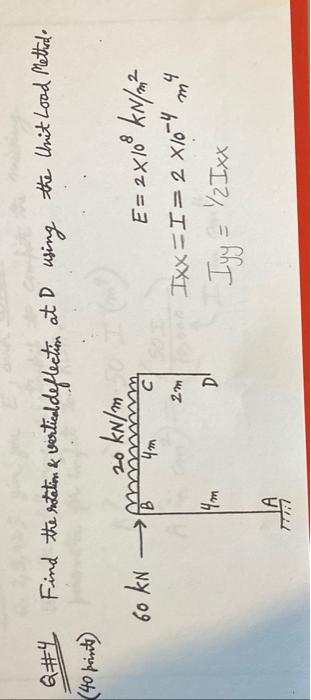 Q#4 Find the rotation & vertical deflection at D using the Unit Load Method.
(40 points)
20 kN/m
60 kN
B
4m
C
4m
2m
D
A
E = 2 x 10⁸ kN/m²
Ixx = I = 2 x 10⁻⁴ m⁴
Iyy = 1/2 Ixx